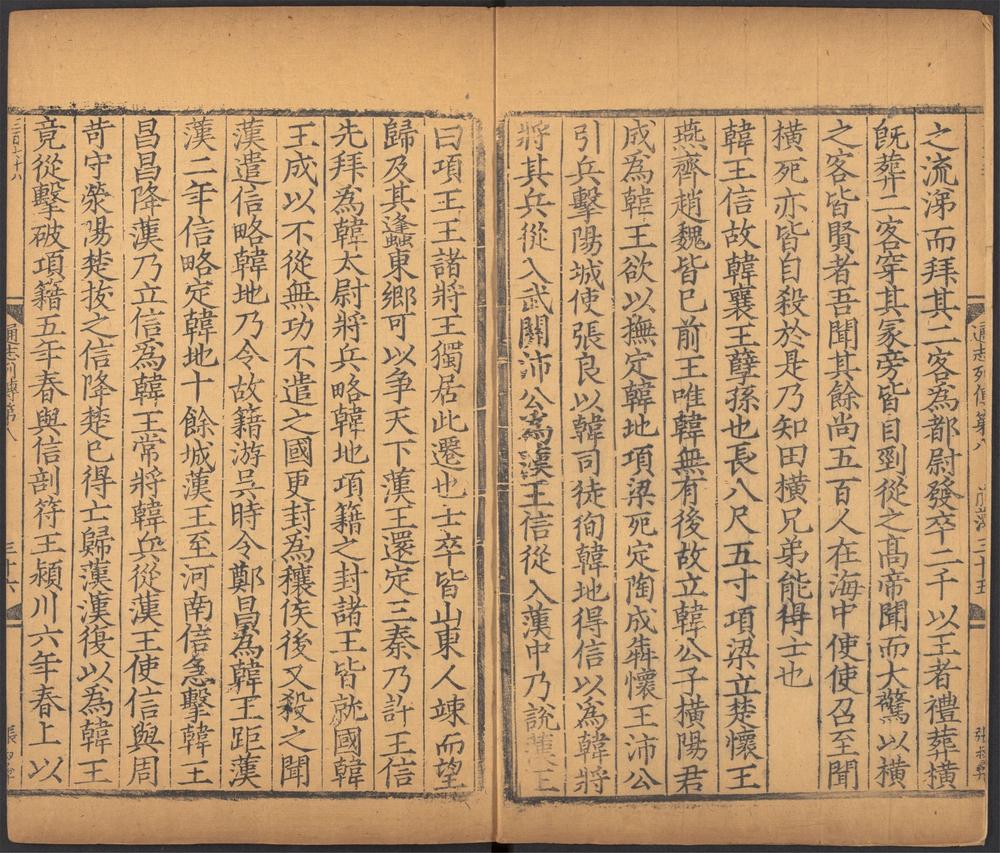 之流涕而拜其二客為都尉發卒二千以王者禮葬橫
旣葬二客穿其冢旁皆自剄從之高帝聞而大驚以橫
之客皆賢者吾聞其餘尚五百人在海中使使召至聞
橫死亦皆自殺於是乃知田橫兄弟能得士也
韓王信故韓襄王孽孫也長八尺五寸項梁立楚懷王
燕齊趙魏皆已前王唯韓無有後故立韓公子橫陽君
成為韓王欲以撫定韓地項梁死定陶成犇懷王沛公
引兵擊陽城使張良以韓司徒徇韓地得信以為韓將
將其兵從入武關沛公為漢王信從入漢中乃說漢王
曰項王王諸將王獨居此遷也士卒皆山東人竦而望
歸及其逢蠭東鄉可以爭天下漢王還定三秦乃許王信
先拜為韓太尉將兵略韓地項籍之封諸王皆就國韓
王成以不從無功不遣之國更封為穰侯後又殺之聞
漢遣信略韓地乃令故籍游吳時令鄭昌為韓王距漢
漢二年信略定韓地十餘城漢王至河南信急擊韓王
昌昌降漢乃立信為韓王常將韓兵從漢王使信與周
苛守滎陽楚拔之信降楚已得亡歸漢漢復以為韓王
竟從擊破項籍五年春與信剖符王潁川六年春上以
通志列傳第八
三十五
通志列傳第八
三十六
三百七十八